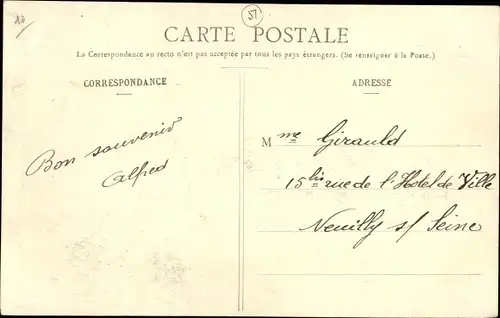 51
CARTE POSTALE
La Correspondance au recto n'est pas acceptée par tous les pays étrangers. (Se renseigner à la Poste.)
CORRESPONDANCE
ADRESSE
Bon souvenir
Alfred
Mme Girauld
15 bis rue de l'Hotel de Ville
Neuilly s/ Seine